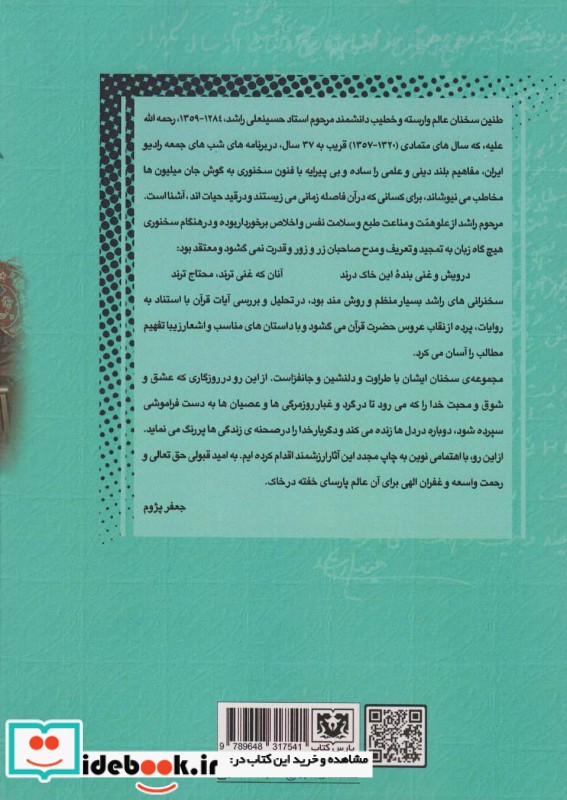 طنین سخنان عالم وارسته و خطیب دانشمند مرحوم استاد حسینعلی راشد، ۱۲۸۴-۱۳۵۹، رحمه الله
علیه، که سال های متمادی (۱۳۲۰-۱۳۵۷) قریب به ۳۷ سال، در برنامه های شب های جمعه رادیو
ایران، مفاهیم بلند دینی و علمی را ساده و بی پیرایه با فنون سخنوری به گوش جان میلیون ها
مخاطب می نیوشاند، برای کسانی که در آن فاصله زمانی می زیستند و در قید حیات اند، آشنا است.
مرحوم راشد از علو همّت و مناعت طبع و سلامت نفس و اخلاص برخوردار بوده و در هنگام سخنوری
هیچ گاه زبان به تمجید و تعریف و مدح صاحبان زر و زور و قدرت نمی گشود و معتقد بود:
درویش و غنی بندهٔ این خاک درند آنان که غنی ترند، محتاج ترند
سخنرانی های راشد بسیار منظم و روش مند بود، در تحلیل و بررسی آیات قرآن با استناد به
روایات، پرده از نقاب عروس حضرت قرآن می گشود و با داستان های مناسب و اشعار زیبا تفهیم
مطالب را آسان می کرد.
مجموعه‌ی سخنان ایشان با طراوت و دلنشین و جانفزاست. از این رو در روزگاری که عشق و
شوق و محبت خدا را که می رود تا در گرد و غبار روزمرگی ها و عصیان ها به دست فراموشی
سپرده شود، دوباره در دل ها زنده می کند و دگربار خدا را در صحنه ی زندگی ها پررنگ می نماید.
از این رو، با اهتمامی نوین به چاپ مجدد این آثار ارزشمند اقدام کرده ایم. به امید قبولی حق تعالی و
رحمت واسعه و غفران الهی برای آن عالم پارسای خفته در خاک.
جعفر پژوم
پارس کتاب
9 789648 317541
مشاهده و خرید این کتاب در:
idebook.ir